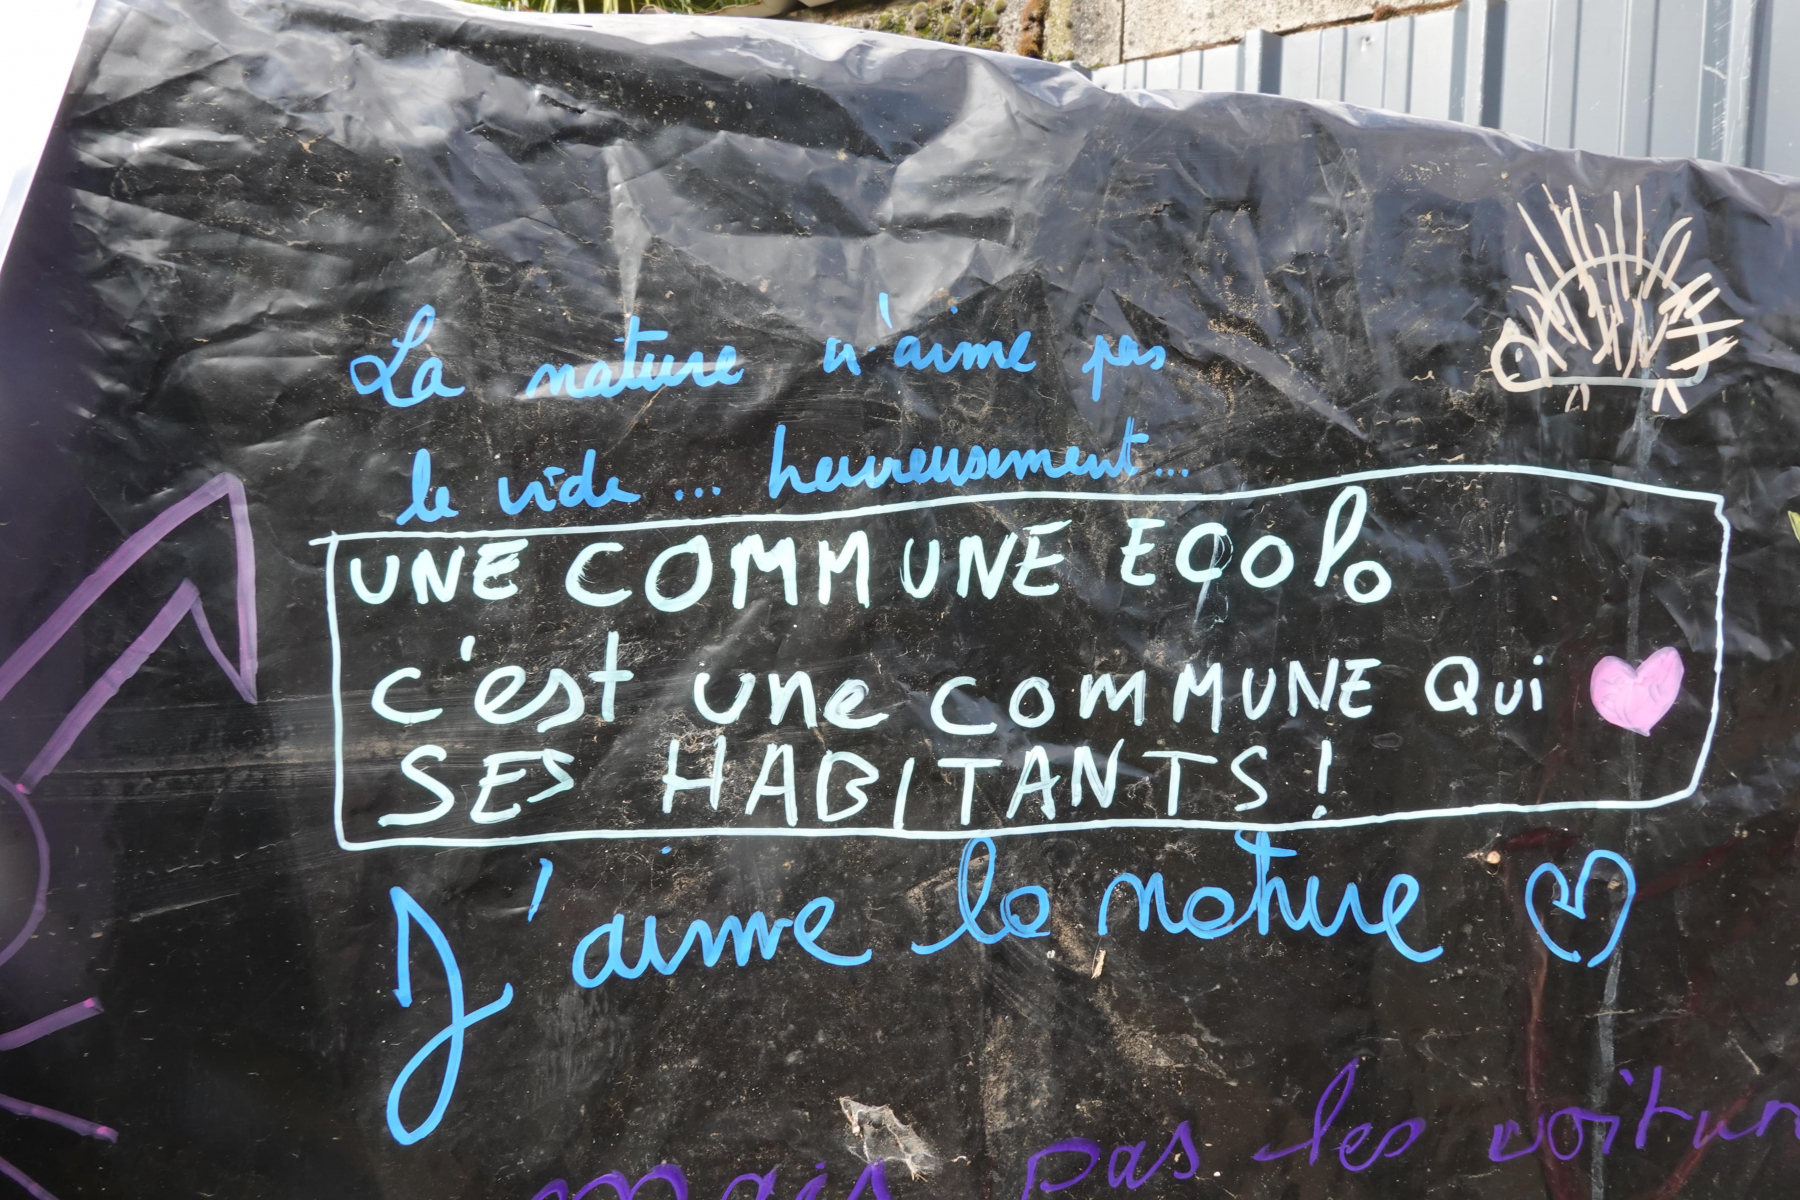 La nature n'aime pas
le vide... heureusement...
UNE COMMUNE ECOlo
c'est une COMMUNE Qui
SES HABITANTS!
J'aime la nature
mais pas les voitur